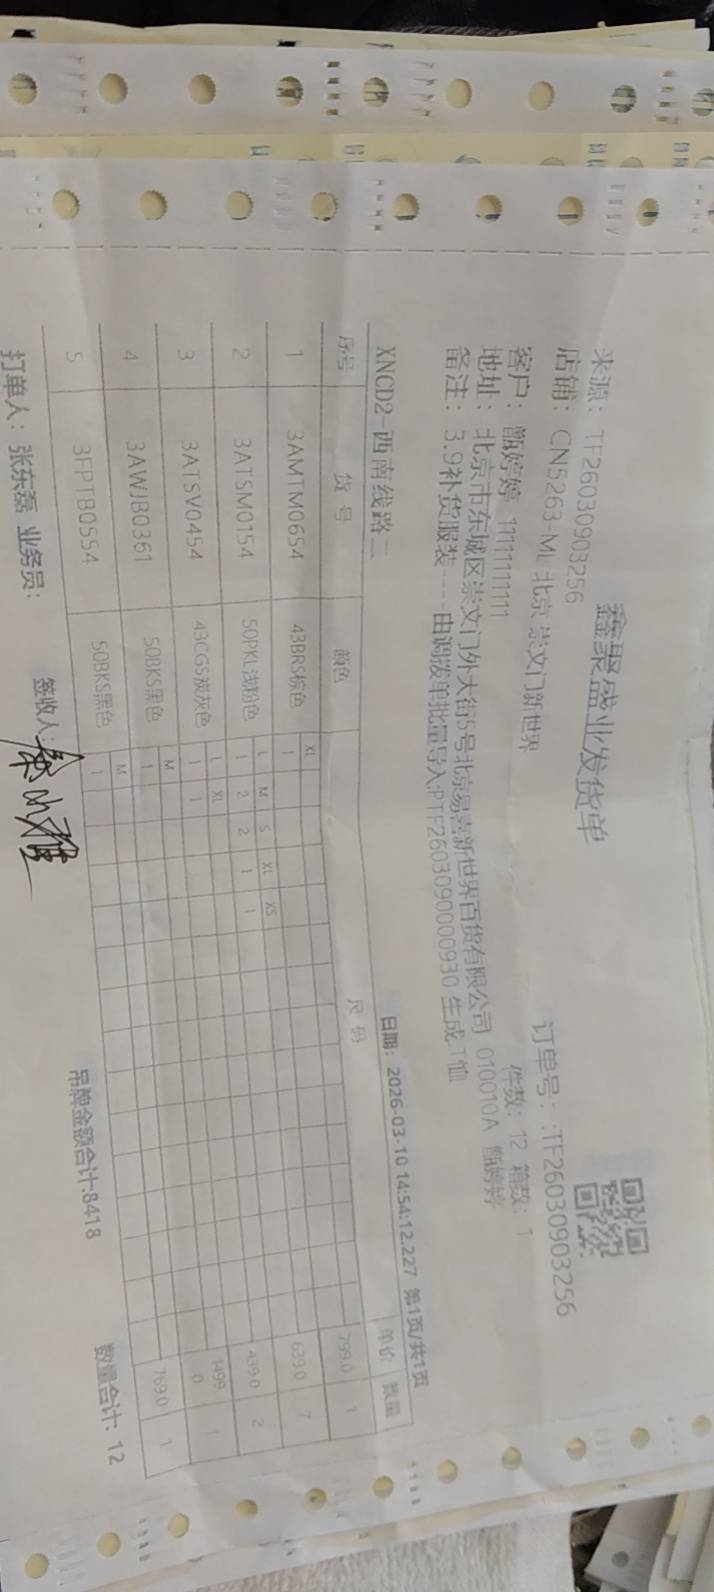 鑫聚盛业发货单
来源：TF26030903256
订单号：:TF26030903256
店铺：CN5263-ML 北京 崇文门新世界
件数：12 箱数：1
客户：甑婷婷 1111111111
地址：北京市东城区崇文门外大街5号北京易喜新世界百货有限公司 010010A 甑婷婷
备注：3.9补货服装----由调拨单批量导入:PTF2603090000930 生成.T恤
XNCD2-西南线路二
日期：2026-03-10 14:54:12.227 第1页/共1页
序号 货号 颜色 尺码 单价 数量
XL
1 3AMTM0654 43BRS棕色 1 799.0 1
L M S XL XS
2 3ATSM0154 50PKL浅粉色 1 2 2 1 1 639.0 7
L XL
3 3ATSV0454 43CGS炭灰色 1 1 439.0 2
M
4 3AWJB0361 50BKS黑色 1 1499.0 1
M
5 3FPTB0554 50BKS黑色 1 769.0 1
吊牌金额合计:8418 数量合计：12
打单人：张东磊 业务员： 签收人：